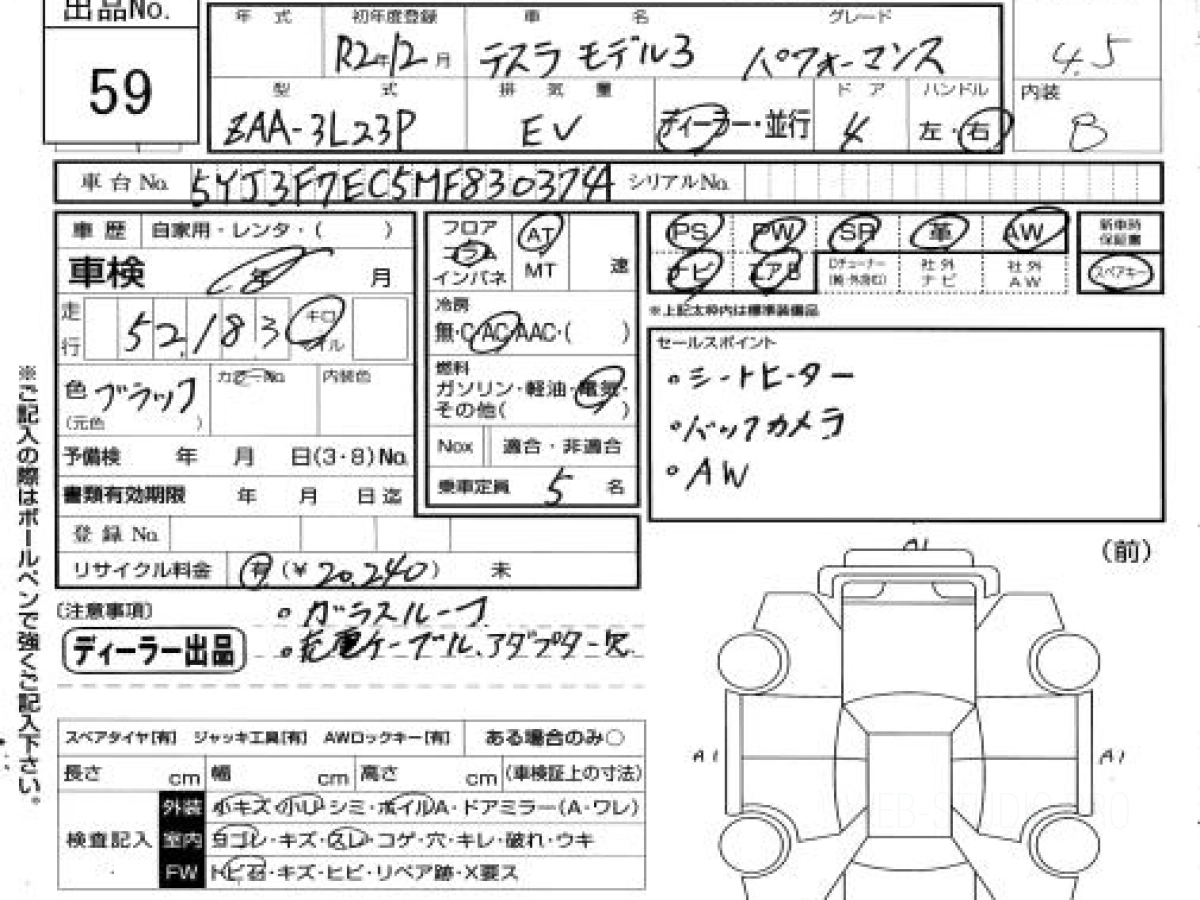 出品No.
59
年 式
初年度登録
R2年12月
車 名
テスラ モデル3
グレード
パフォーマンス
4.5
型 式
ZAA-3L23P
排 気 量
EV
ディーラー・並行
ド ア
4
ハンドル
左・右
内装
B
車台No. 5YJ3F7EC5MF830374 シリアルNo.
車 歴 自家用・レンタ・( )
車検 年 月
走行 52,183 キロ マイル
色 ブラック
(元色 )
カラーNo.
内装色
予備検 年 月 日(3・8)No.
書類有効期限 年 月 日迄
登 録 No.
リサイクル料金 有 (¥ 20,240) 未
フロア
コラム
インパネ
AT
MT
速
冷房
無・C AC AAC・( )
燃料
ガソリン・軽油・電気・
その他( )
Nox 適合・非適合
乗車定員 5 名
PS PW SR 革 AW
ナビ エアB
社外ナビ
社外AW
新車時保証書
スペアキー
※上記太枠内は標準装備品
セールスポイント
・シートヒーター
・バックカメラ
・AW
(注意事項)
・ガラスルーフ
ディーラー出品
・充電ケーブル、アダプター欠
※ご記入の際はボールペンで強くご記入下さい。
スペアタイヤ[有] ジャッキ工具[有] AWロックキー[有] ある場合のみ○
長さ cm 幅 cm 高さ cm (車検証上の寸法)
検査記入
外装 小キズ・小U・シミ・ホイルA・ドアミラー(A・ワレ)
室内 ヨゴレ・キズ・スレ・コゲ・穴・キレ・破れ・ウキ
FW トビ石・キズ・ヒビ・リペア跡・X要ス
(前)
A1
A1
A1